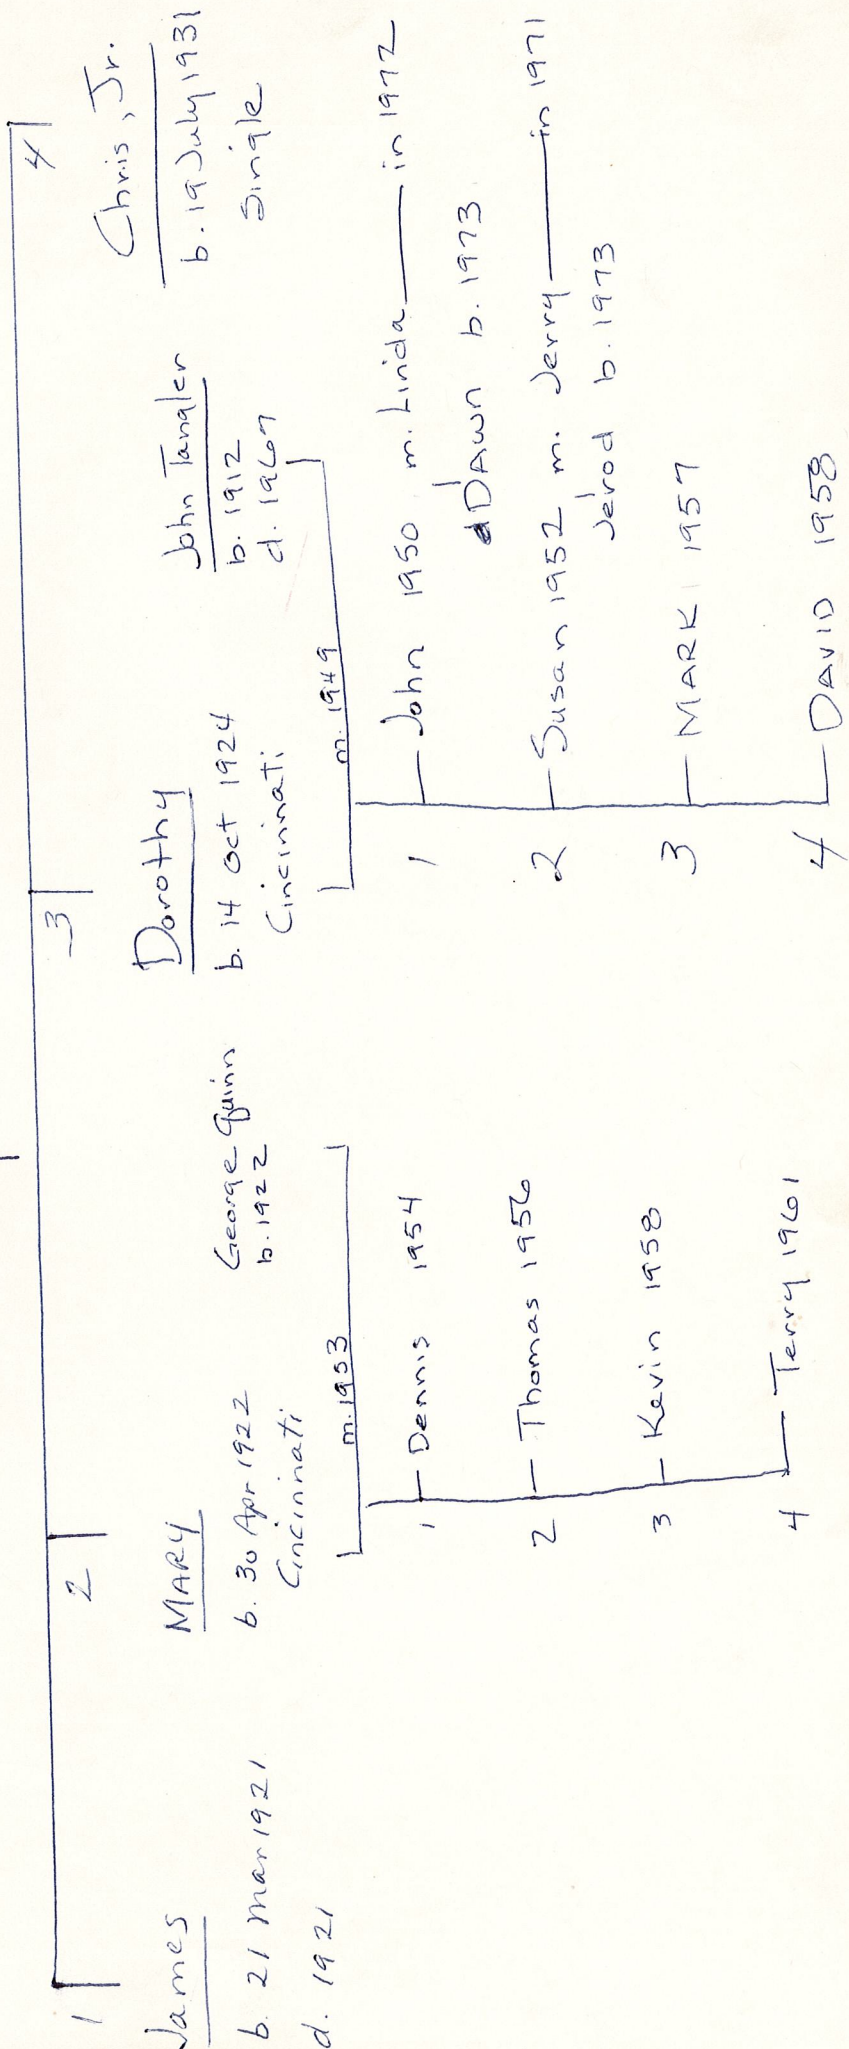 1
James
b. 21 Mar 1921
d. 1921
2
MARY
b. 30 Apr 1922
Cincinnati
George Quinn
b. 1922
m. 1953
1 Dennis 1954
2 Thomas 1956
3 Kevin 1958
4 Terry 1961
3
Dorothy
b. 14 Oct 1924
Cincinnati
John Tangler
b. 1912
d. 1967
m. 1949
1 John 1950 m. Linda —— in 1972
DAWN b. 1973
2 Susan 1952 m. Jerry —— in 1971
Jerod b. 1973
3 MARK 1957
4 DAVID 1958
4
Chris, Jr.
b. 19 July 1931
Single